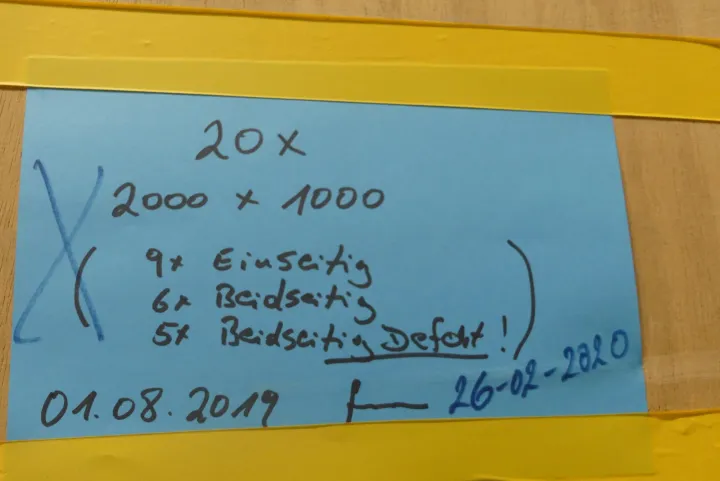 20x
2000 x 1000
( 9x Einseitig
6x Beidseitig
5x Beidseitig Defekt! )
01.08.2019 26-02-2020